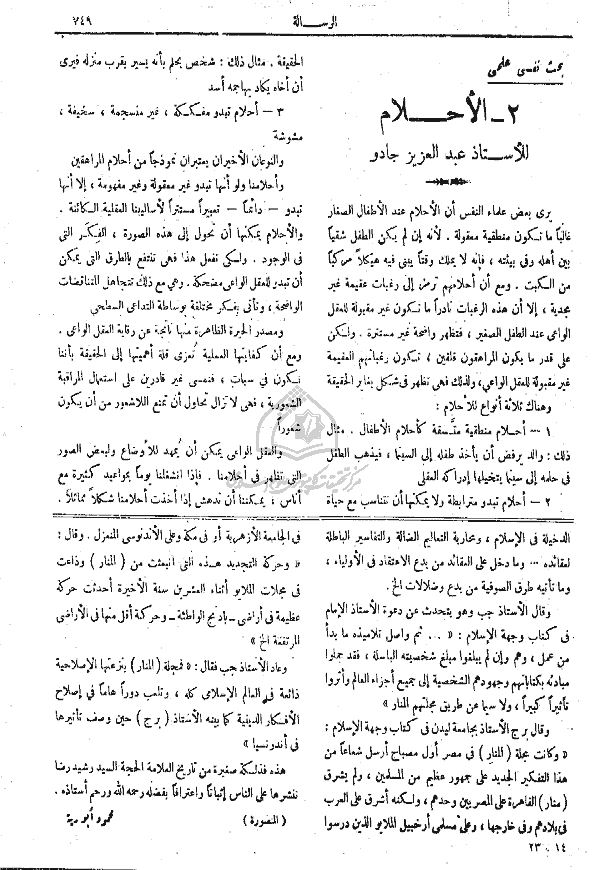 ٧٤٩
الرسالة
بحث نفسى علمى
٢ - الأحلام
للأستاذ عبد العزيز جادو
يرى بعض علماء النفس أن الأحلام عند الأطفال الصغار
غالباً ما تكون منطقية معقولة . لأنه إن لم يكن الطفل شقياً
بين أهله وفى بيئته ، فإنه لا يملك وقتاً يبنى فيه هيكلا مركباً
من الكبت . ومع أن أحلامهم ترمز إلى رغبات عقيمة غير
مجدية ، إلا أن هذه الرغبات نادراً ما تكون غير مقبولة للعقل
الواعى عند الطفل الصغير ، فتظهر واضحة غير مستترة . ولكن
على قدر ما يكون المراهقون قلقين ، تكون رغباتهم العقيمة
غير مقبولة للعقل الواعى، ولذلك فهى تظهر فى شكل يغاير الحقيقة
وهناك ثلاثة أنواع للأحلام :
١ — أحلام منطقية متسقة كأحلام الأطفال . مثال
ذلك : والد يرفض أن يأخذ طفله إلى السينما ، فيذهب الطفل
فى حلمه إلى سينما يتخيلها إدراكه العقلى
٢ — أحلام تبدو مترابطة ولا يمكنها أن تتناسب مع حياة
الحقيقة . مثال ذلك : شخص يحلم بأنه يسير بقرب منزله فيرى
أن أخاه يكاد يهاجمه أسد
٣ — أحلام تبدو مفككة ، غير منسجمة ، سخيفة ،
مشوشة
والنوعان الأخيران يعتبران نموذجاً من أحلام المراهقين
وأحلامنا ولو أنها تبدو غير معقولة وغير مفهومة ، إلا أنها
تبدو — دائماً — تعبيراً مستتراً لأساليبنا العقلية الكائنة .
والأحلام يمكنها أن تحول إلى هذه الصورة ، الفكر التى
فى الوجود . ولكى تفعل هذا فهى تنتفع بالطرق التى يمكن
أن تبدو للعقل الواعى مضحكة . وهي مع ذلك تتجاهل المتناقضات
الواضحة ، وتأتى بفكر مختلقة بوساطة التداعى السطحي
ومصدر الحيرة الظاهرة منها ناتجة عن رقابة العقل الواعى .
ومع أن كفايتها العملية تعزى قلة أهميتها إلى الحقيقة بأننا
نكون فى سبات ، فنمسى غير قادرين على استعمال المراقبة
الشعورية ، فهى لا تزال تحاول أن تمنع اللاشعور من أن يكون
شعوراً
والعقل الواعى يمكن أن يمهد للأوضاع ولبعض الصور
التى تظهر فى أحلامنا . فإذا انشغلنا يوماً بمواعيد كثيرة مع
أناس ، يمكننا أن ندهش إذا أخذت أحلامنا شكلاً مماثلاً .
الدخيلة فى الإسلام ، ومحاربة التعاليم الضالة والتفاسير الباطلة
لعقائده ... وما دخل على العقائد من بدع الاعتقاد فى الأولياء ،
وما تأتيه طرق الصوفية من بدع وضلالات الخ .
وقال الأستاذ جب وهو يتحدث عن دعوة الأستاذ الإمام
فى كتاب وجهة الإسلام : « ... ثم واصل تلاميذه ما بدأ
من عمل ، وهم وإن لم يبلغوا مبلغ شخصيته الباسلة ، فقد حملوا
مبادئه بكتاباتهم وجهودهم الشخصية إلى جميع أجزاء العالم وأثروا
تأثيراً كبيراً ، ولا سيما عن طريق مجلتهم المنار »
وقال برج الأستاذ بجامعة ليدن فى كتاب وجهة الإسلام :
« وكانت مجلة (المنار) فى مصر أول مصباح أرسل شعاعاً من
هذا التفكير الجديد على جمهور عظيم من المسلمين ، ولم يشرق
(منار) القاهرة على المصريين وحدهم ، ولكنه أشرق على العرب
فى بلادهم وفى خارجها ، وعلى مسلمى أرخبيل الملايو الذين درسوا
فى الجامعة الأزهرية أو فى مكة وعلى الأندنوسى المنعزل . وقال :
« وحركة التجديد هذه التى انبعثت من (المنار) وذاعت
فى مجلات الملايو أثناء العشرين سنة الأخيرة أحدثت حركة
عظيمة فى أراضى - بادنج الواطئة - وحركة أقل منها فى الأراضى
المرتفعة الخ »
وعاد الأستاذ جب فقال : « فمجلة (المنار) بنزعتها الإصلاحية
ذائعة فى العالم الإسلامى كله ، وتلعب دوراً هاماً فى إصلاح
الأفكار الدينية كما بينه الأستاذ (برج) حين وصف تأثيرها
فى أندنسيا »
هذه فذلكة صغيرة من تاريخ العلامة الحجة السيد رشيد رضا
ننشرها على الناس إثباتاً واعترافاً بفضله رحمه الله ورحم أستاذه .
( المنصورة ) محمود أبو رية
١٤ - ٢٣